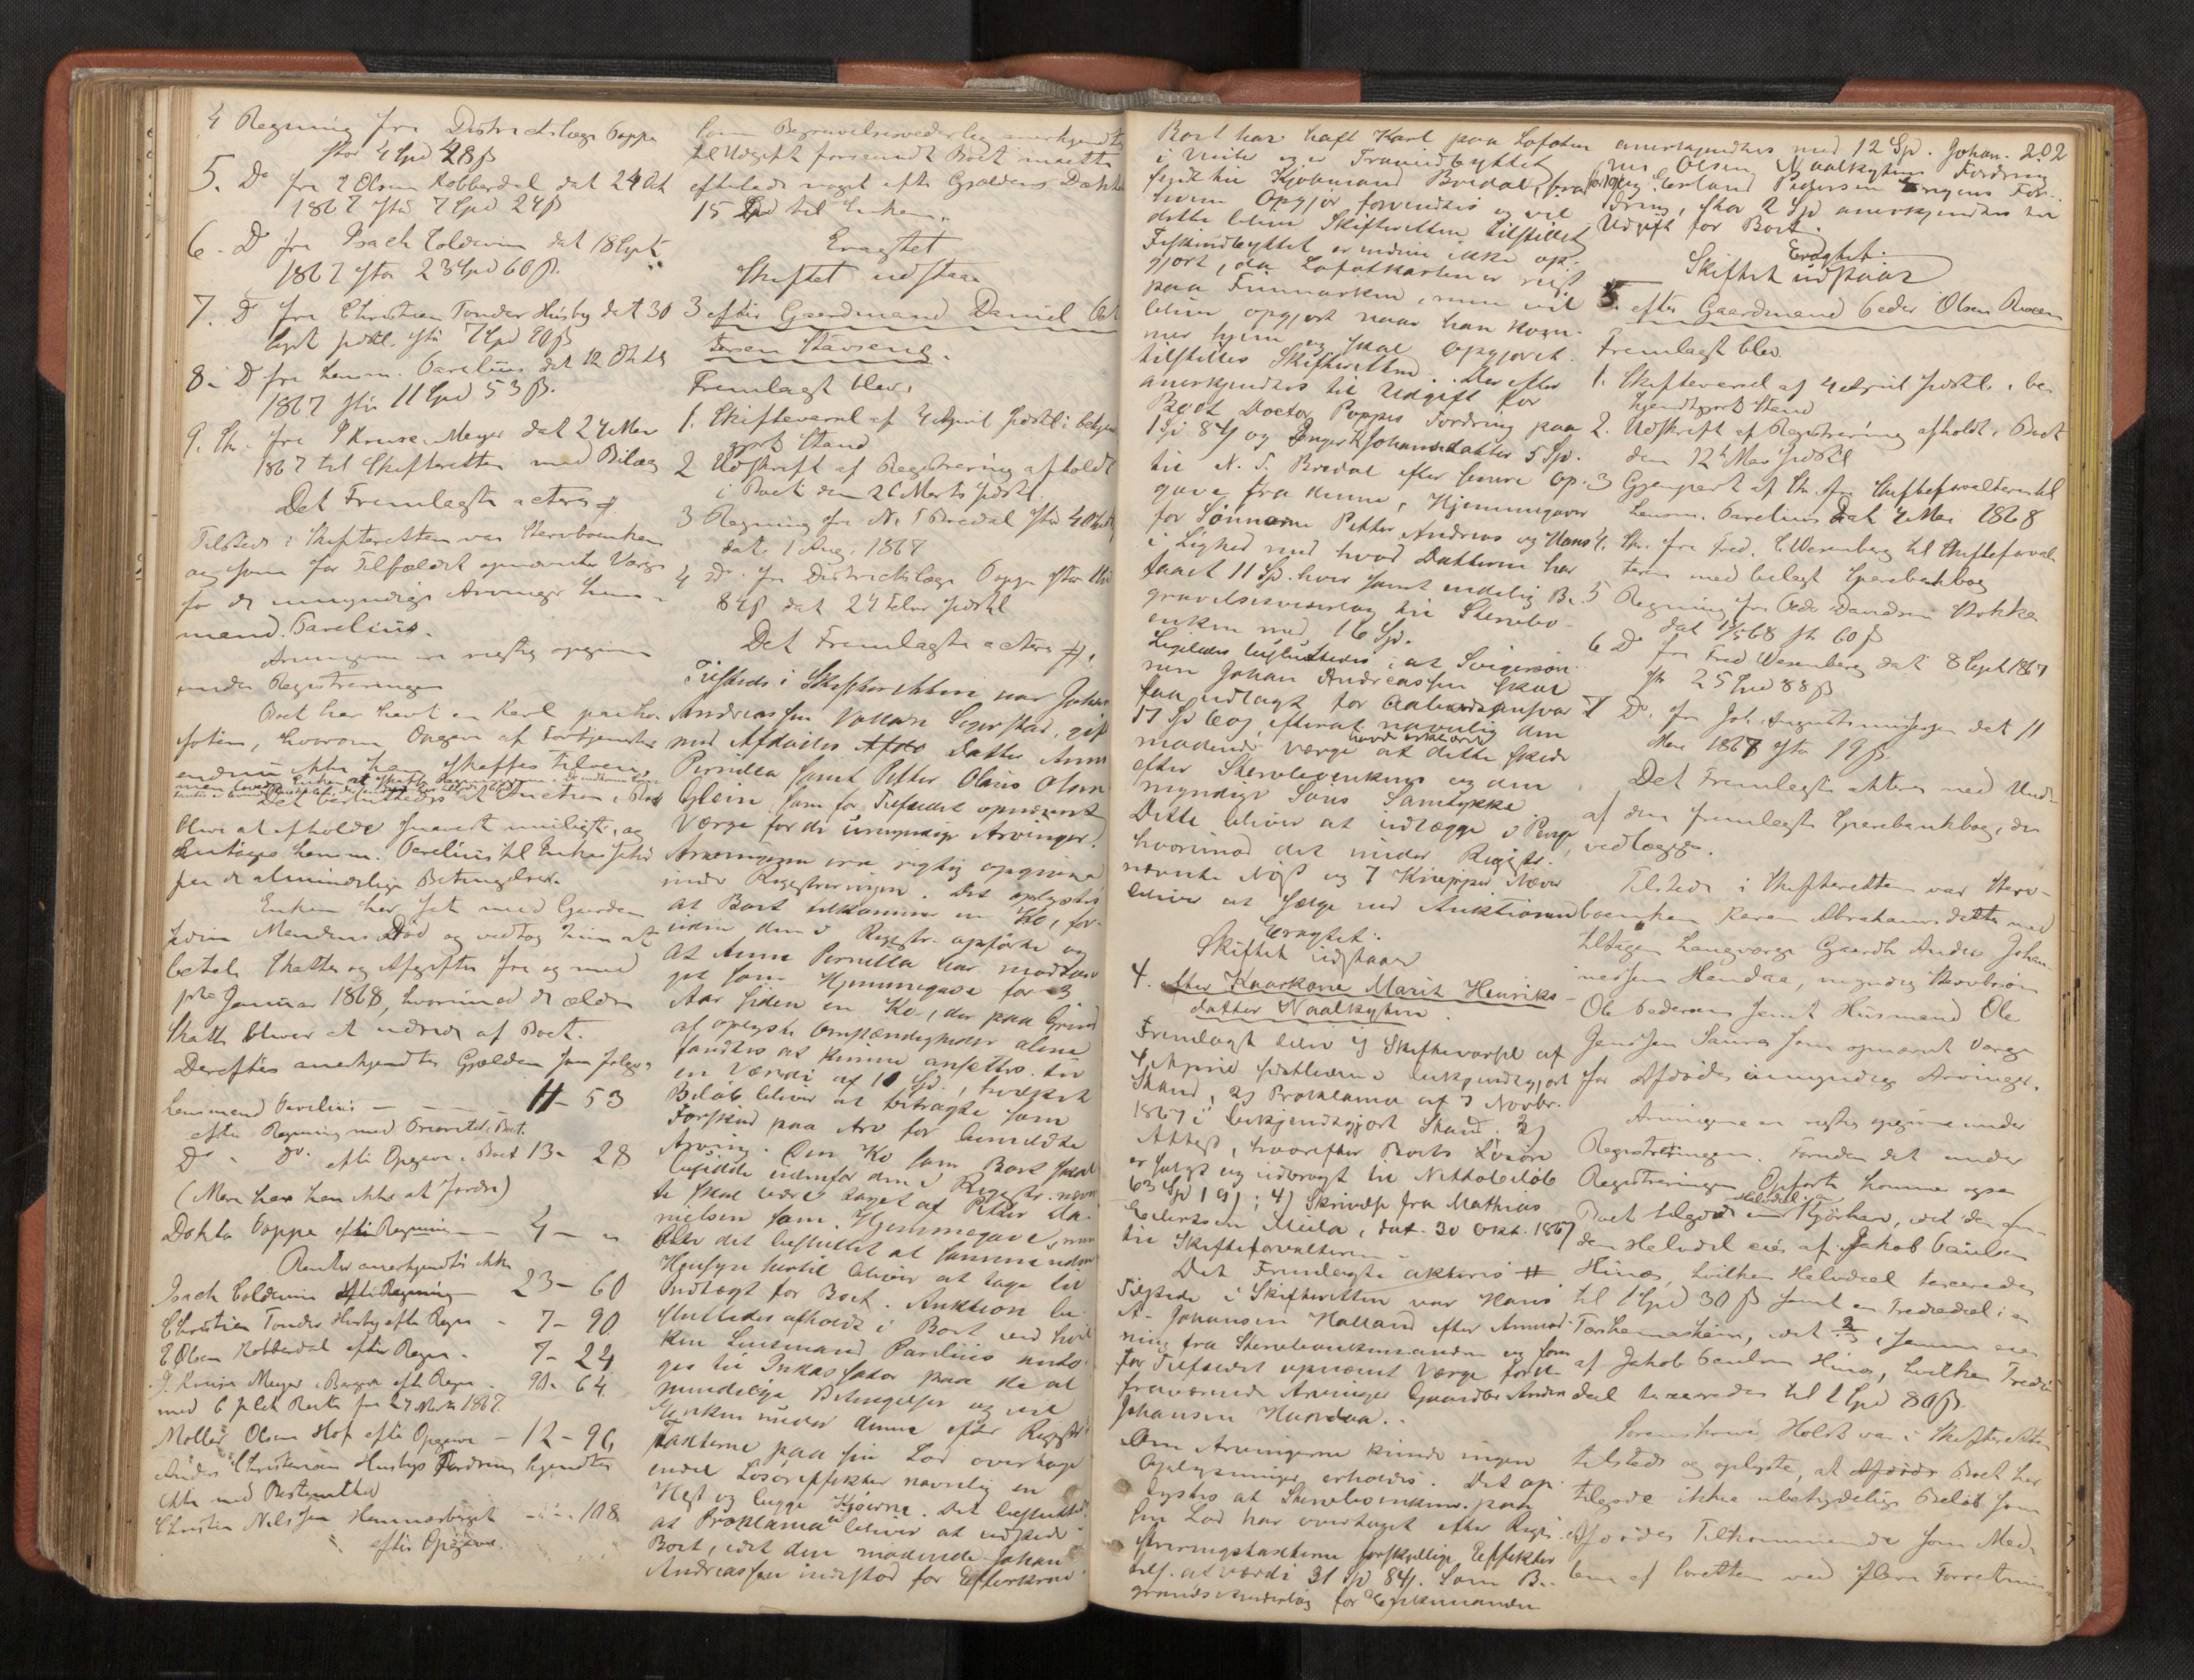 4 Regning fra Districtslæge Poppe
stor 4 Spd 28 ß
5. Do fra E Olsen Kobberdal dat 24 Oct
1867 stor 7 Spd 24 ß
6. Do fra Isach Coldevin dat 18 Sept
1867 stor 23 Spd 60 ß.
7. Do fra Christian Tonder Husby dat 30
Sept sidstl. stor 7 Spd 90 ß
8. Do fra Lensm. Parelius dat 12 Oktbr
1867 stor 11 Spd 53 ß.
9. Skr. fra J Kruse Meyer dat 24 Mai
1867 til Skifteretten med Bilag
Det Fremlagte acteres #
Tilstede i Skifteretten var Stervboenken
og som for Tilfældet opnævnte Værge
for de umyndige Arvinger Lens-
mand Parelius.
Arvingerne ere rigtig opgivne
under Registreringen
Boet har havt en Karl paa Lo-
foten, hvorom Opgave af Fortjeneste
endnu ikke kan skaffes tilveie,
Det besluttedes at Auction i Boet
bliver at afholde snarest muligt, og
antoges Lensm. Parelius til Inkassator
paa de almindelige Betingelser.
Enken har sat med Gaarden
siden Mandens Død og vedtog hun at
betale Skatter og Afgifter fra og med
1ste Januar 1868, hvorimod de ældre
Skatter bliver at udrede af Boet.
Derefter anerkjendtes Gjælden som følger
Lensmand Parelius — 11 - 53
efter Regning med Prioritet i Boet.
Do " Do. efter Opgave i Boet 13 - 28
(Mere har han ikke at fordre)
Doktor Poppe efter Regning — 4 - "
Renter anerkjendtes ikke
Isach Coldevin efter Regning 23 - 60
Christian Tonder Husby efter Regn - 7 - 90
E Olsen Kobberdal efter Regn. - 7 - 24
J. Kruse Meyer i Bergen efter Regn - 90 - 64
med 6 pCt Rente fra 24 Mai 1867.
Møller Olsen Hof efter Opgave - 12 - 96
Anders Christensen Husbys Fordring kjendtes
ikke med Bestemthed
Christen Nilssen Hammersberget - " - 108
efter Opgave.
som Begravelsesvederlag anerkjendtes
til Udgift forsaavidt Boet maatte
efterlade noget efter Gjældens Dækkelse
15 Spd til Enken.
Eragtet
Skiftet udstaar
3 efter Gaardmand Daniel Pet
tersen Stavseng.
Fremlagt blev.
1. Skiftevarsel af 4 April sidstl. i bekjendt-
gjort Stand
2 Udskrift af Registrering afholdt
i Boet den 26 Marts sidstl.
3 Regning fra N. T Bredal stor
dat. 1 Aug. 1867
4 Do. fra Districtslæge Poppe stor 1 Spd
84 ß dat 24 Febr sidstl
Det Fremlagte acteres #.
Tilstede i Skifteretten var Johan
Andreassen Vollan Segerstad, gift
med Afdødes Datter Anne
Pernilla samt Petter Olaus Olsen
Glein som for Tilfældet opnævnt
Værge for de umyndige Arvinger.
Arvingerne ere rigtig opgivne
under Registreringen. Det oplystes
at Boet tilkommer en Ko, for-
uden den i Registr. opførte og
at Anne Pernilla har modtaget
som Hjemmegave for 3
Aar siden en Ko, der paa Grund
af oplyste Omstændigheder alene
fandtes at kunne ansættes til
en Værdi af 10 Spd., hvilket
Beløb bliver at betragte som
Forskud paa Arv for bemeldte
Arving. Den Ko som Boet skal
besidde udenfor den i Registr. nævn
te skal være taget af Petter Da-
nielsen som Hjemmegave, men
blev det besluttet at samme uden
Hensyn hertil bliver at tage til
Indtægt for Boet. Auktion be-
sluttedes afholdt i Boet ved hvil
ken Lensmand Parelius anto-
ges til Inkassator paa de al
mindelige Betingelser og vil
Enken under denne efter Registr.
Taxterne paa sin Lod overtage
endel Løsøreeffekter navnlig en
Hest og begge Kjøerne. Det besluttedes
at Proklama bliver at udstede i
Boet, idet den mødende Johan
Andreassen indestod for Efterkrav
Boet har havt Karl paa Lofoten
i Vinter og er Tranudbyttet
sendt til Kjøbmand Bredal, fra
hvem Opgjør forventes og vil
dette blive Skifteretten tilstillet
Fiskeudbyttet er endnu ikke op-
gjort, da Lofotkarlen er reist
paa Finmarken, men vil
blive opgjort naar han kom-
mer hjem og skal Opgjøret
tilstilles Skifteretten. Derefter
anerkjendtes til Udgift for
Boet Doctor Poppes Fordring paa
1 Spd 84 ß og Inger K Johansdatter 5 Spd.
til N. T. Bredal efter senere Op-
gave fra denne, Hjemmegaver
for Sønnerne Petter Andreas og Hans
i Lighed med hvad Datteren har
faaet 11 Sp. hver samt endelig Be-
gravelsesvederlag til Stervbo-
enken med 16 Spd.
Ligeledes besluttedes at Svigersøn-
nen Johan Andreassen skal
faa udlagt for Aaboedsansvar
17 Sp Cog, efterat navnlig den
mødende Værge havde erklæret at dette skede
efter Stervboenkens og den
myndige Søns Samtykke
Dette bliver at udlægge i Penge,
hvorimod det under Registr.
nævnte Nøst og 7 Knipper Næver
bliver at sælge ved Auktionen
Eragtet:
Skiftet udstaar
4. efter Kaarkone Marit Henriks-
datter Naalkyten.
Fremlagt blev 1) Skiftevarsel af
4 April sidstleden i bekjendtgjort
Stand, 2) Proklama af 7 Novbr.
1867 i bekjendtgjort Stand. 3)
Attest, hvorefter Boets Løsøre
er solgt og udbragt til Nettobeløb
63 Spd 19 ß; 4) Skrivelse fra Mathias
Eilertsen Meila, dat. 30 Okt. 1867
til Skifteforvalteren.
Det Fremlagte akteres #
Tilstede i Skifteretten var Hans
A. Johansen Halland efter Anmod-
ning fra Stervboenkemanden og som
for Tilfældet opnævnt Værge for de
fraværende Arvinger Gaardbr Anders
Johansen Haordaa.
Om Arvingerne kunde ingen
Oplysninger erholdes. Det op-
lystes at Stervboenkem. paa
sin Lod har overtaget efter Regi-
streringstaxterne forskjellige Effekter
tils. af værdi 31 Spd 84 ß. Som Be-
gravelsesvederlag for Enkemanden
anerkjendtes med 12 Sp. Johan- 202
nes Olsen Naalkytens Fordring
og Erland Pedersen Engens For-
dring, stor 2 Spd anerkjendtes til
Udgift for Boet.
Eragtet.
Skiftet udstaar
5. efter Gaardmand Peder Olsen Roreen
Fremlagt blev.
1. Skiftevarsel af 4 April sidstl. i be-
kjendtgjort Stand
2. Udskrift af Registrering afholdt i Boet
den 12te Mai sidstl
3 Gjenpart af Skr. fra Skifteforvalteren til
Lensm. Parelius dat 4 Mai 1868
4. Skr. fra Fred. C Wesenberg til Skifteforval
teren med bilagt Sparebankbog
5 Regning fra Peder Davidsen Stokka
dat 12/5 68 st 60 ß
6 Do fra Fred Wesenberg dat 8 Sept 1867
st 25 Spd 88 ß
7 Do. fra Joh. Augustinussen dat 11
Mai 1868 stor 19 ß.
Det Fremlagte akteres med Und-
af den fremlagte Sparebankbog, der
vedlægges.
Tilstede i Skifteretten var Sterv-
boenken Karen Abrahamsdatter med
tiltagen Laugværge Gaardbr Anders Johan-
nessen Hamdaa, myndig Stervbosøn
Ole Pedersen samt Husmand Ole
Jenssen Saura som opnævnt Værge
for Afdødes umyndige Arvinger.
Arvingerne er rigtig opgivne under
Registreringen. Foruden det under
Registreringen Opførte kommer ogsaa
Boet tilgode Halvdel i en Kjørkar, idet den an-
den Halvdel eies af Jakob Paulsen
Hinæs, hvilken Halvdeel taxeredes
til 1 Spd 30 ß samt en Trediedeel i en
Tærskemaskin, idet 2/3 i samme eies
af Jakob Paulsen Hinæs, hvilken Tredie-
deel taxeredes til 1 Spd 80 ß.
Sorenskriver Holst var i Skifteretten
tilstede og oplyste, at Boet har
tilgode ikke ubetydelige Beløb som
Afdødes Tilkommende som Med-
lem af Lagretten ved flere Forretnin-